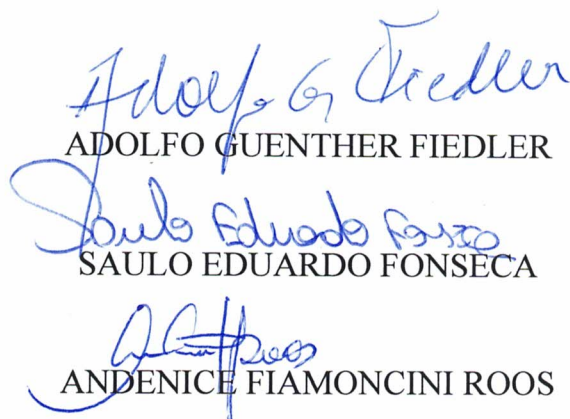 Adolfo G Fiedler
ADOLFO GUENTHER FIEDLER
Saulo Eduardo Fonseca
SAULO EDUARDO FONSECA
Roos
ANDENICE FIAMONCINI ROOS